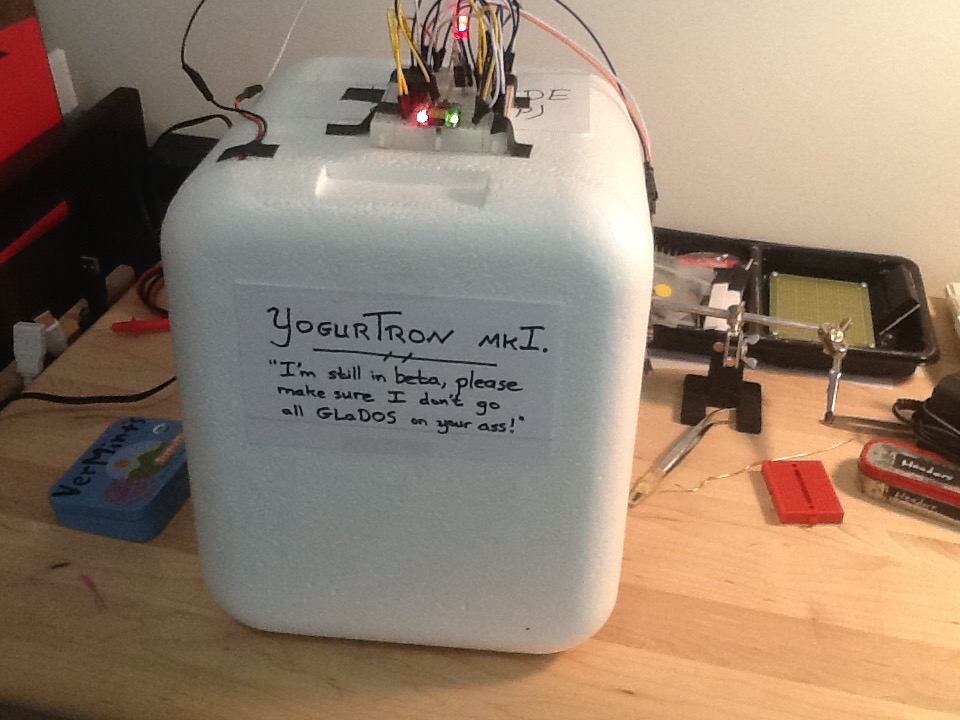 DE
PJ
YOGURTRON MKI.
"I'm still in beta, please
make sure I don't go
all GLaDOS on your ass!"
VerMints
Headers
Header